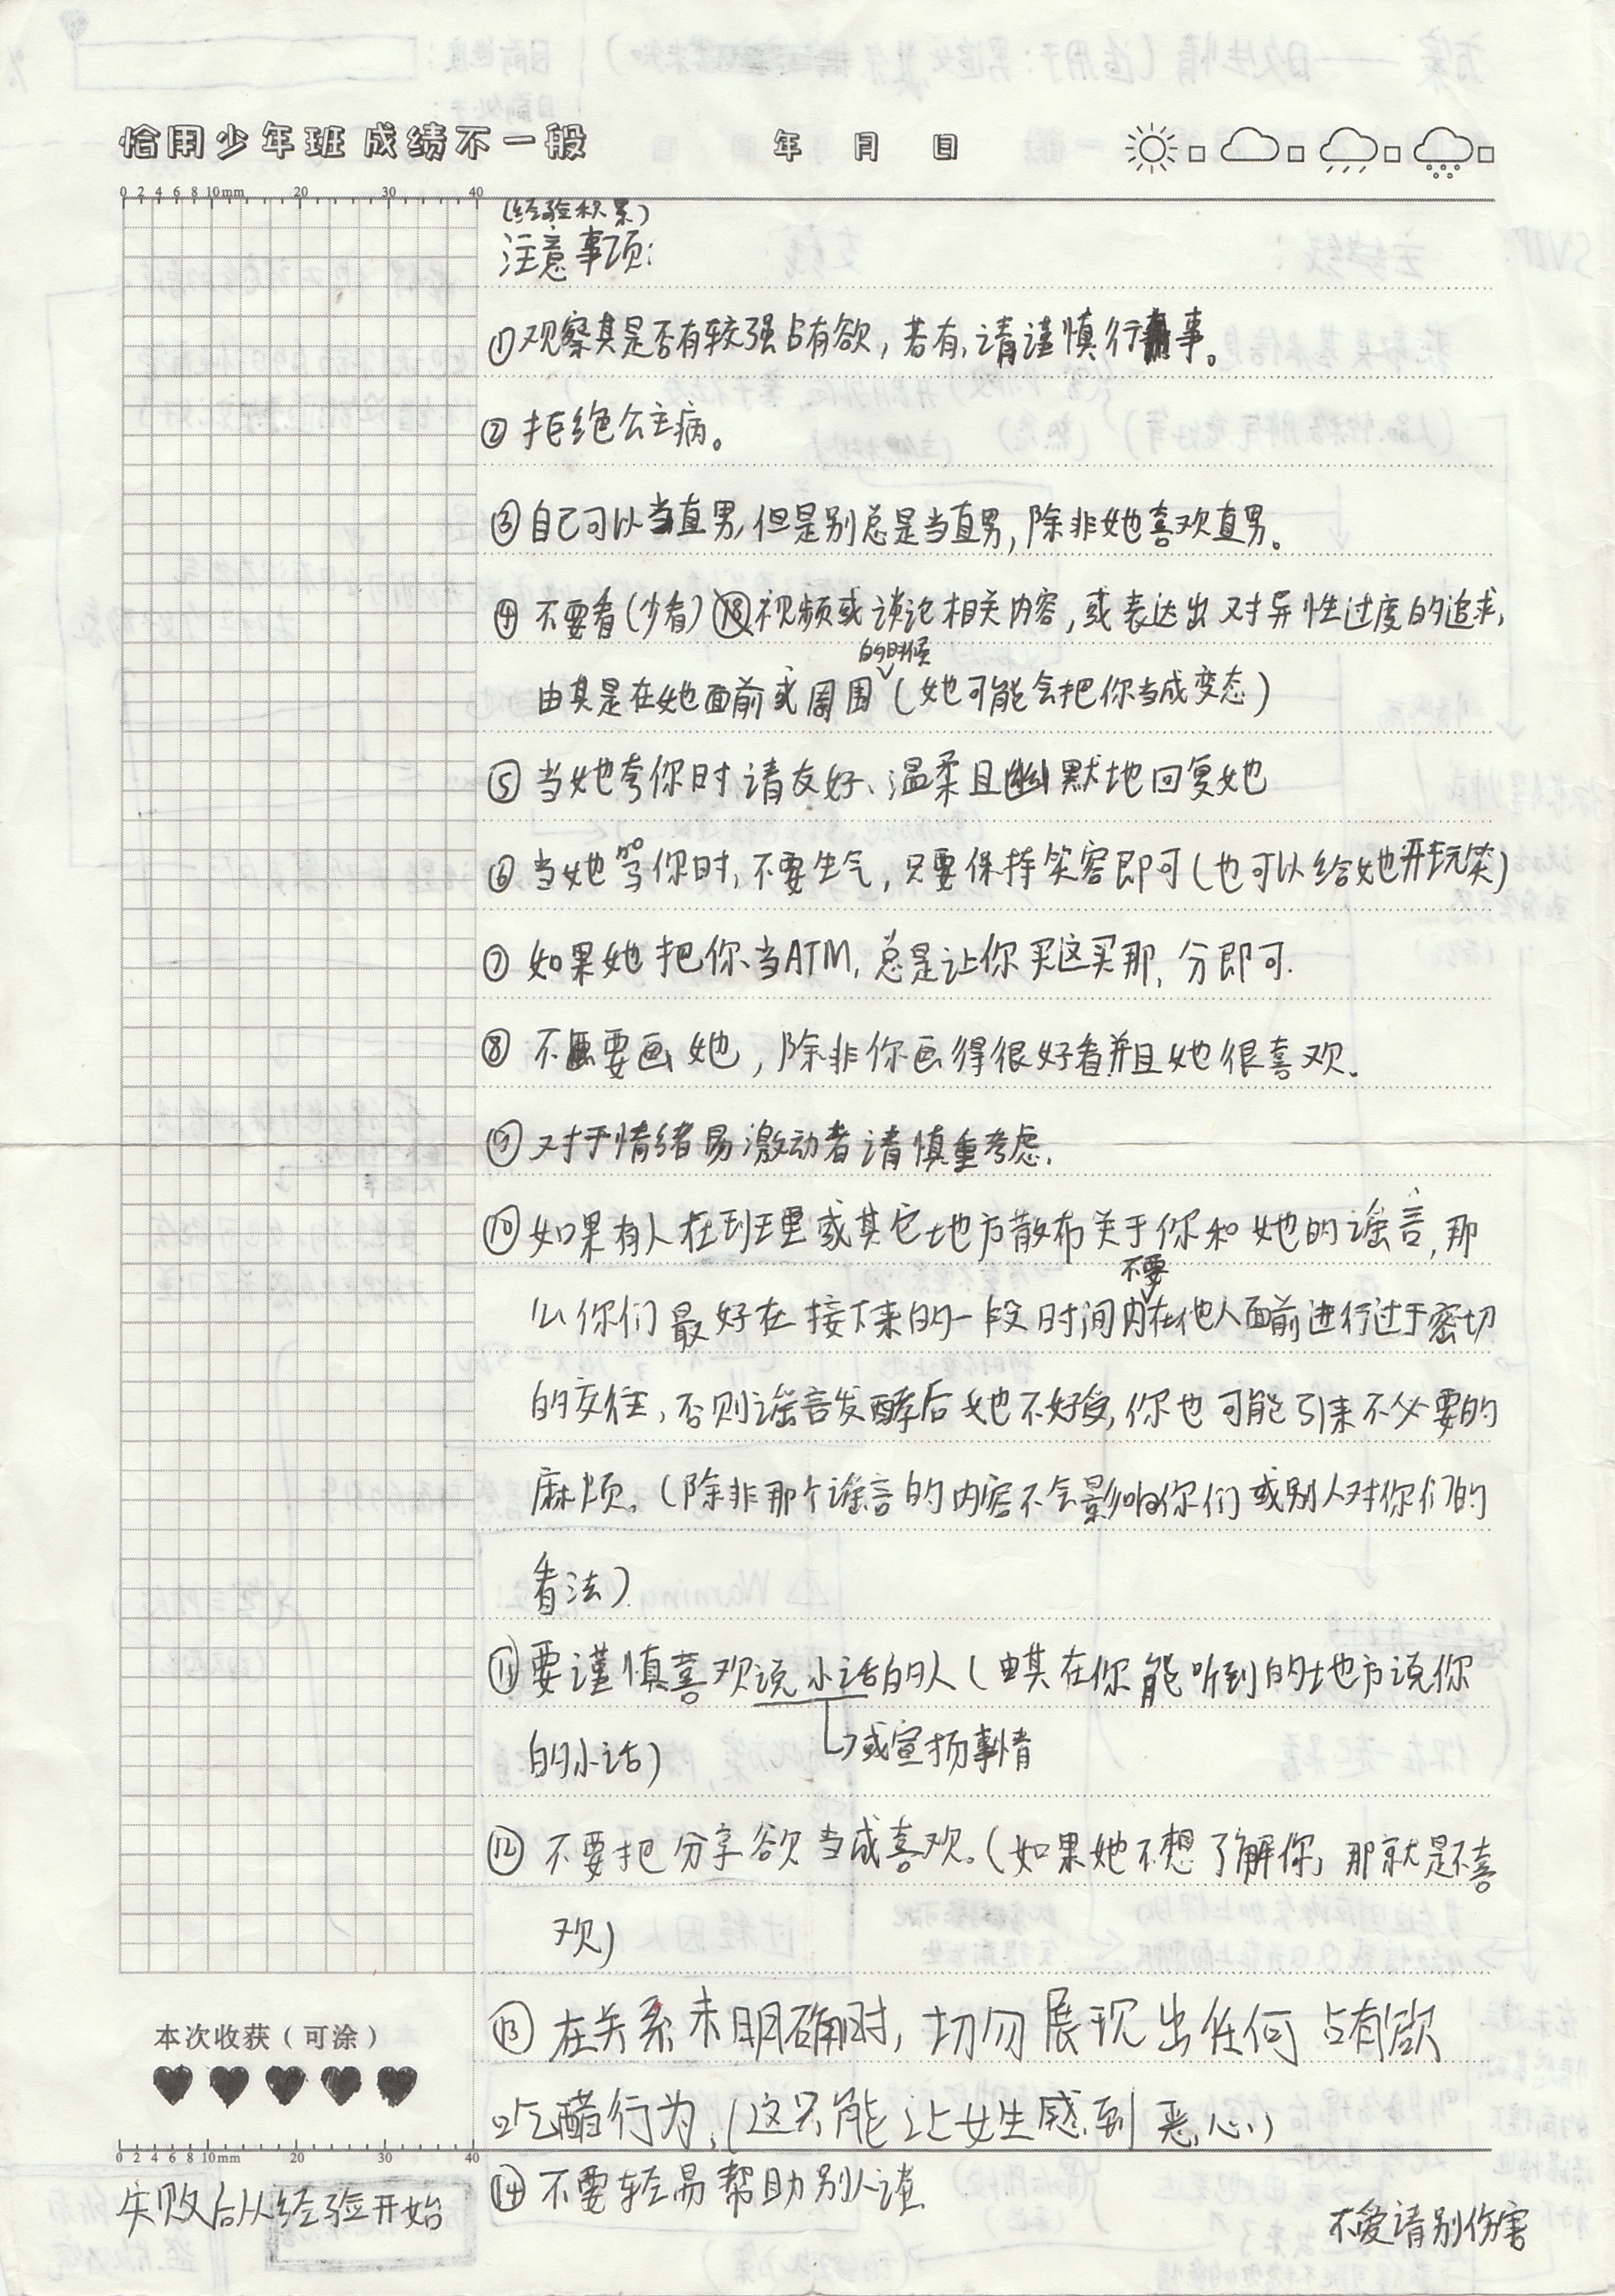 恰同少年班 成绩不一般 年 月 日
0 2 4 6 8 10mm 20 30 40
(经验积累)
注意事项:
①观察其是否有较强占有欲,若有,请谨慎行事。
②拒绝公主病。
③自己可以当直男,但是别总是当直男,除非她喜欢直男。
④不要看(少看)⑱视频或谈论相关内容,或表达出对异性过度的追求,
由其是在她面前或周围的时候(她可能会把你当成变态)
⑤当她夸你时请友好、温柔且幽默地回复她
⑥当她骂你时,不要生气,只要保持笑容即可(也可以给她开玩笑)
⑦如果她把你当ATM,总是让你买这买那,分即可.
⑧不要画她,除非你画得很好看并且她很喜欢.
⑨对于情绪易激动者请慎重考虑.
⑩如果有人在班理或其它地方散布关于你和她的谣言,那
么你们最好在接下来的一段时间内不要在他人面前进行过于密切
的交往,否则谣言发酵后她不好受,你也可能引来不必要的
麻烦。(除非那个谣言的内容不会影响你们或别人对你们的
看法)
⑪要谨慎喜欢说小话的人(由其在你能听到的地方说你
的小话)
或宣扬事情
⑫不要把分享欲当成喜欢。(如果她不想了解你,那就是不喜
欢)
⑬在关系未明确时,切勿展现出任何占有欲
本次收获(可涂)
吃醋行为,(这只能让女生感到恶心)
0 2 4 6 8 10mm 20 30 40
⑭不要轻易帮助别人追
失败后从经验开始
不爱请别伤害